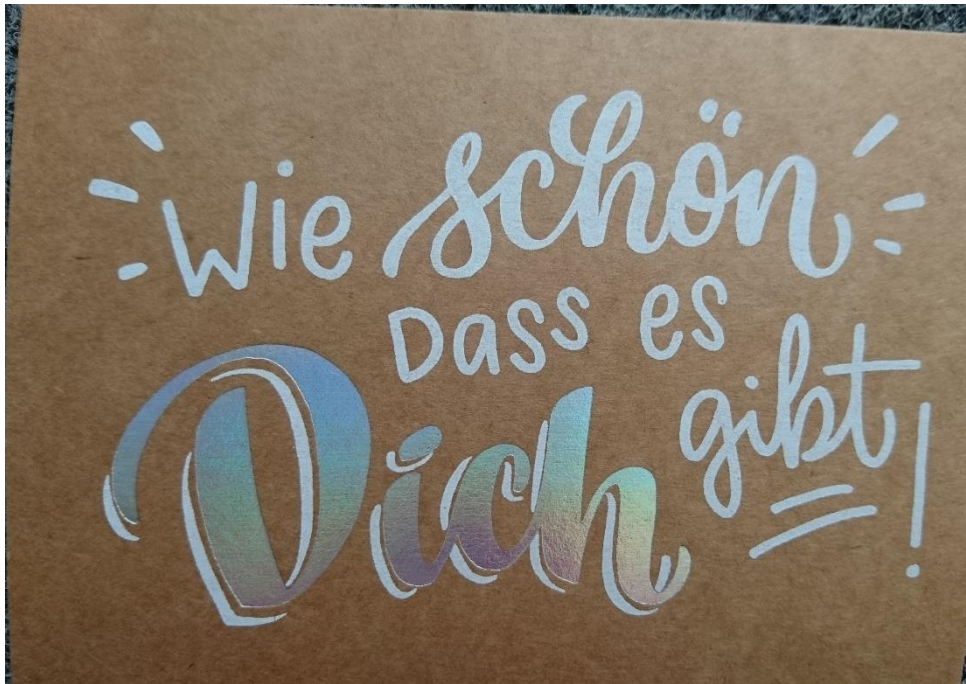 Wie schön
Dass es
Dich gibt!